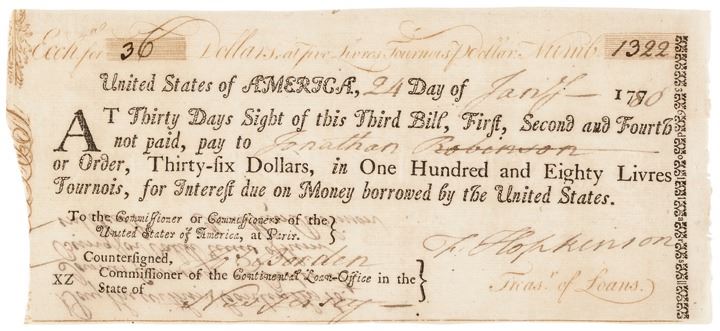 Exch.ᵃ for 36 Dollars, at five Livres Tournois ⅌ Dollar. Numb. 1322
United States of AMERICA, 24 Day of Jan'y 1780
AT Thirty Days Sight of this Third Bill, First, Second and Fourth
not paid, pay to Jonathan Robinson
or Order, Thirty-six Dollars, in One Hundred and Eighty Livres
Tournois, for Interest due on Money borrowed by the United States.
To the Commissioner or Commissioners of the
United States of America, at Paris.
F. Hopkinson
Treas.ʳ of Loans.
Countersigned,
XZ Commissioner of the Continental Loan-Office in the
State of